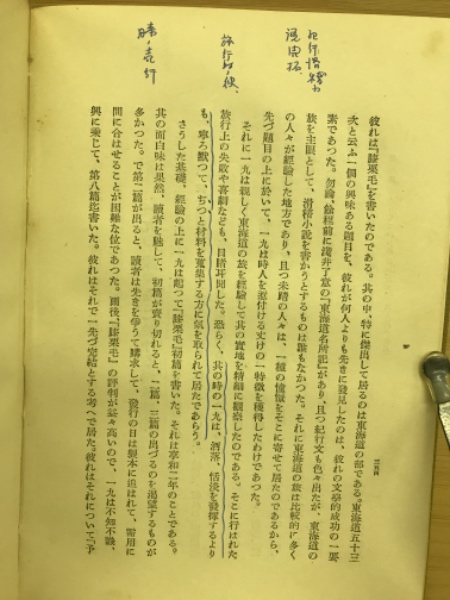 三五四
彼れは『膝栗毛』を書いたのである。其の中、特に傑出して居るのは東海道の部である。東海道五十三
次と云ふ一個の興味ある題目を、彼れが何人よりも先きに發見したのは、彼れの文學的成功の一要
素であつた。勿論、餘程前に淺井了意の『東海道名所記』があり、且つ紀行文も色々出たが、東海道の
旅を主眼として、滑稽小説を書かうとするものは誰もなかつた。それに東海道の旅は比較的に多く
の人々が經驗した地方であり、且つ未踏の人々は、一種の憧憬をそこに寄せて居たのであるから、
先づ題目の上に於いて、一九は時人を惹付ける丈けの一特徴を獲得したわけであつた。
それに一九は親しく東海道の旅を經驗して其の實地を精細に觀察したのである。そこに行はれた
旅行上の失敗や喜劇なども、目睹耳聞した。恐らく、其の時の一九は、洒落、恬淡を發揮するより
も、寧ろ默つて、ぢつと材料を蒐集する方に氣を取られて居たであらう。
さうした基礎、經驗の上に一九は起つて『膝栗毛』初篇を書いた。それは享和二年のことである。
其の面白味は果然、讀者を魅して、初篇が賣り切れると、二篇、三篇の出づるのを渇望するものが
多かつた。で第二篇が出ると、讀者は先きを爭うて購求して、發行の日は製本に追はれて、需用に
間に合はせることが困難な位であつた。爾後『膝栗毛』の評判が益々高いので、一九は不知不識、
興に乘じて、第八篇迄書いた。彼れはそれで一先づ完結とする考へで居た。彼れはそれについて『予
旅行